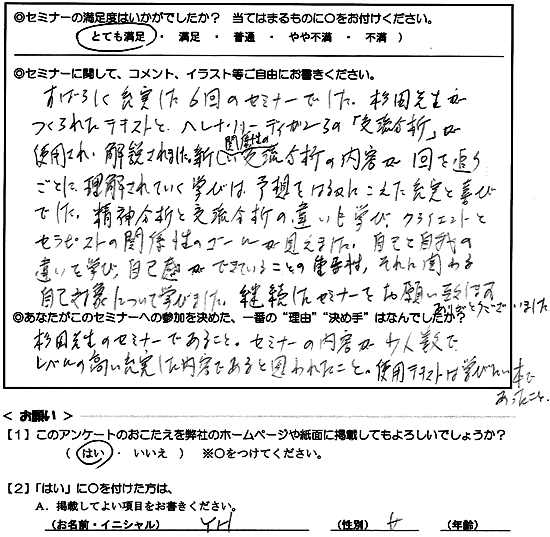 ◎セミナーの満足度はいかがでしたか？ 当てはまるものに〇をお付けください。
とても満足 ・ 満足 ・ 普通 ・ やや不満 ・ 不満 ）
◎セミナーに関して、コメント、イラスト等ご自由にお書きください。
すばらしく充実した6回のセミナーでした。杉田先生が
つくられたテキストと、ヘレナ・ハーガデンの「交流分析」が
関係性の
使用され、解説されました。新しい交流分析の内容が回を追う
ごとに理解されていく学びは予想をはるかにこえた充実と喜び
でした。精神分析と交流分析の違いも学び、クライエントと
セラピストの関係性のゴールが見えました。自己と自我の
違いを学び、自己感ができていることの重要性、それに関わる
自己対象について学びました。継続したセミナーをお願い致します
ありがとうございました
◎あなたがこのセミナーへの参加を決めた、一番の“理由”“決め手”はなんでしたか？
杉田先生のセミナーであること。セミナーの内容が少人数で
レベルの高い充実した内容であると思われたこと。使用テキストは学びたい本で
あったこと。
< お願い >
【1】このアンケートのおこたえを弊社のホームページや紙面に掲載してもよろしいでしょうか？
（ はい ・ いいえ ） ※〇をつけてください。
【2】「はい」に〇を付けた方は、
A. 掲載してよい項目をお書きください。
(お名前・イニシャル) YH (性別) 女 (年齢)